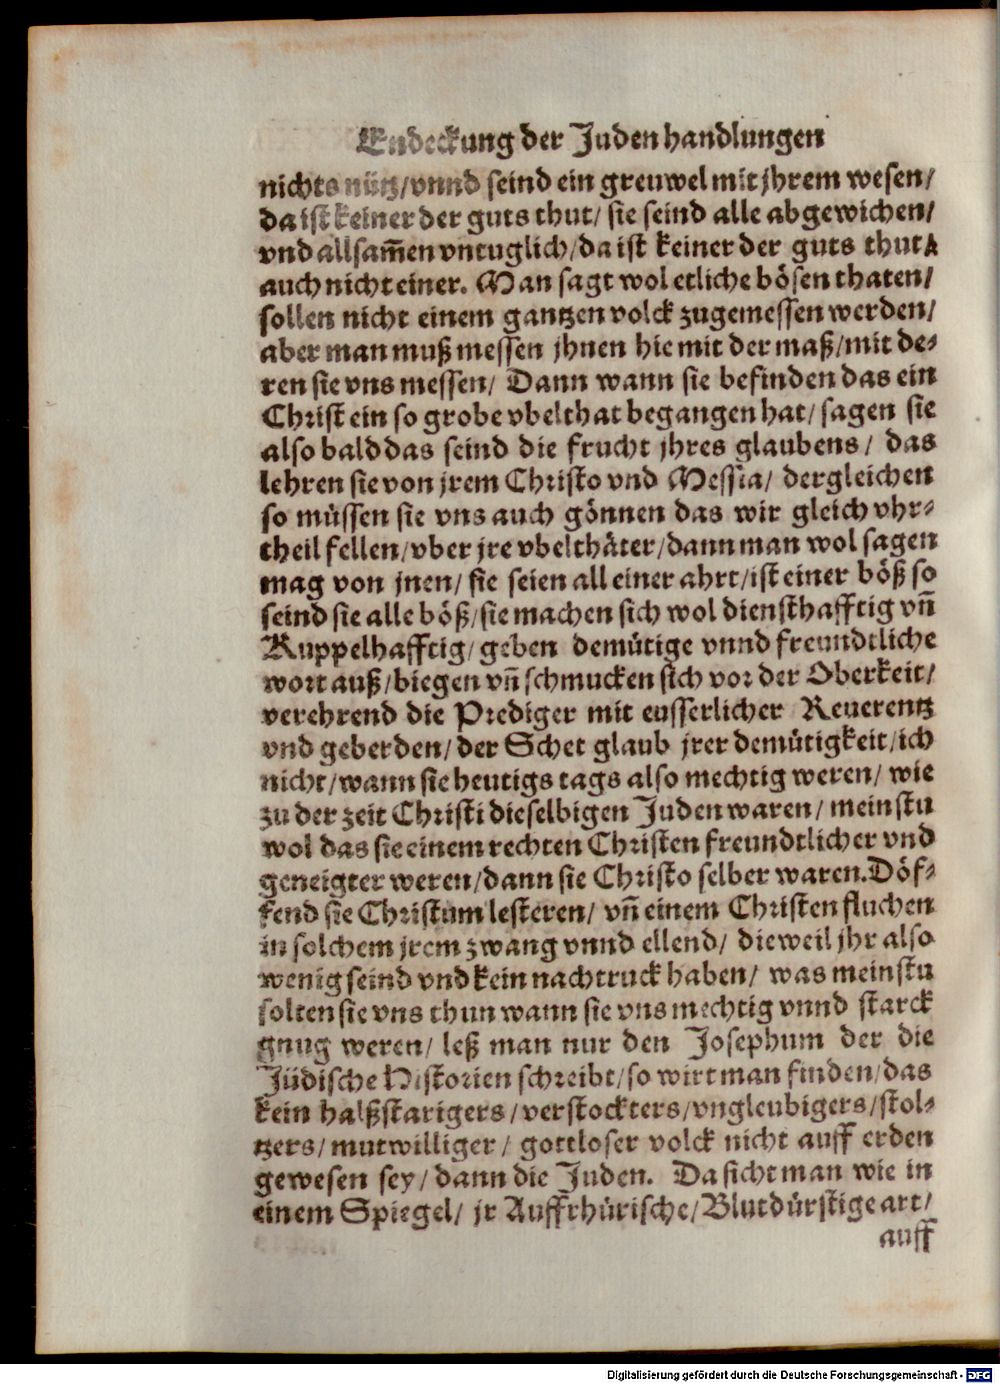 Endeckung der Juden handlungen
nichts nütz/vnnd seind ein greuwel mit jhrem wesen/
da ist keiner der guts thut/ sie seind alle abgewichen/
vnd allsam̃en vntuglich/da ist keiner der guts thut
auch nicht einer. Man sagt wol etliche bösen thaten/
sollen nicht einem gantzen volck zugemessen werden/
aber man muß messen jhnen hie mit der maß/mit de⸗
ren sie vns messen/ Dann wann sie befinden das ein
Christ ein so grobe vbelthat begangen hat/ sagen sie
also bald das seind die frucht jhres glaubens/ das
lehren sie von jrem Christo vnd Messia/ dergleichen
so müssen sie vns auch gönnen das wir gleich vhr⸗
theil fellen/vber jre vbelthäter/dann man wol sagen
mag von jnen/ sie seien all einer ahrt/ist einer böß so
seind sie alle böß/sie machen sich wol diensthafftig vñ
Ruppelhafftig/geben demütige vnnd freundtliche
wort auß/biegen vñ schmucken sich vor der Oberkeit/
verehrend die Prediger mit eusserlicher Reuerentz
vnd geberden/der Schet glaub jrer demütigkeit/ich
nicht/wann sie heutigs tags also mechtig weren/ wie
zu der zeit Christi dieselbigen Juden waren/ meinstu
wol das sie einem rechten Christen freundtlicher vnd
geneigter weren/dann sie Christo selber waren.Döf⸗
fend sie Christum lesteren/ vñ einem Christen fluchen
in solchem jrem zwang vnnd ellend/ dieweil jhr also
wenig seind vnd kein nachtruck haben/ was meinstu
solten sie vns thun wann sie vns mechtig vnnd starck
gnug weren/ leß man nur den Josephum der die
Jüdische Historien schreibt/so wirt man finden/das
kein halßstarigers/verstockters/vngleubigers/stol⸗
tzers/mutwilliger/ gottloser volck nicht auff erden
gewesen sey/dann die Juden. Da sicht man wie in
einem Spiegel/ jr Auffrhürische/Blutdürstige art/
auff
Digitalisierung gefördert durch die Deutsche Forschungsgemeinschaft - DFG